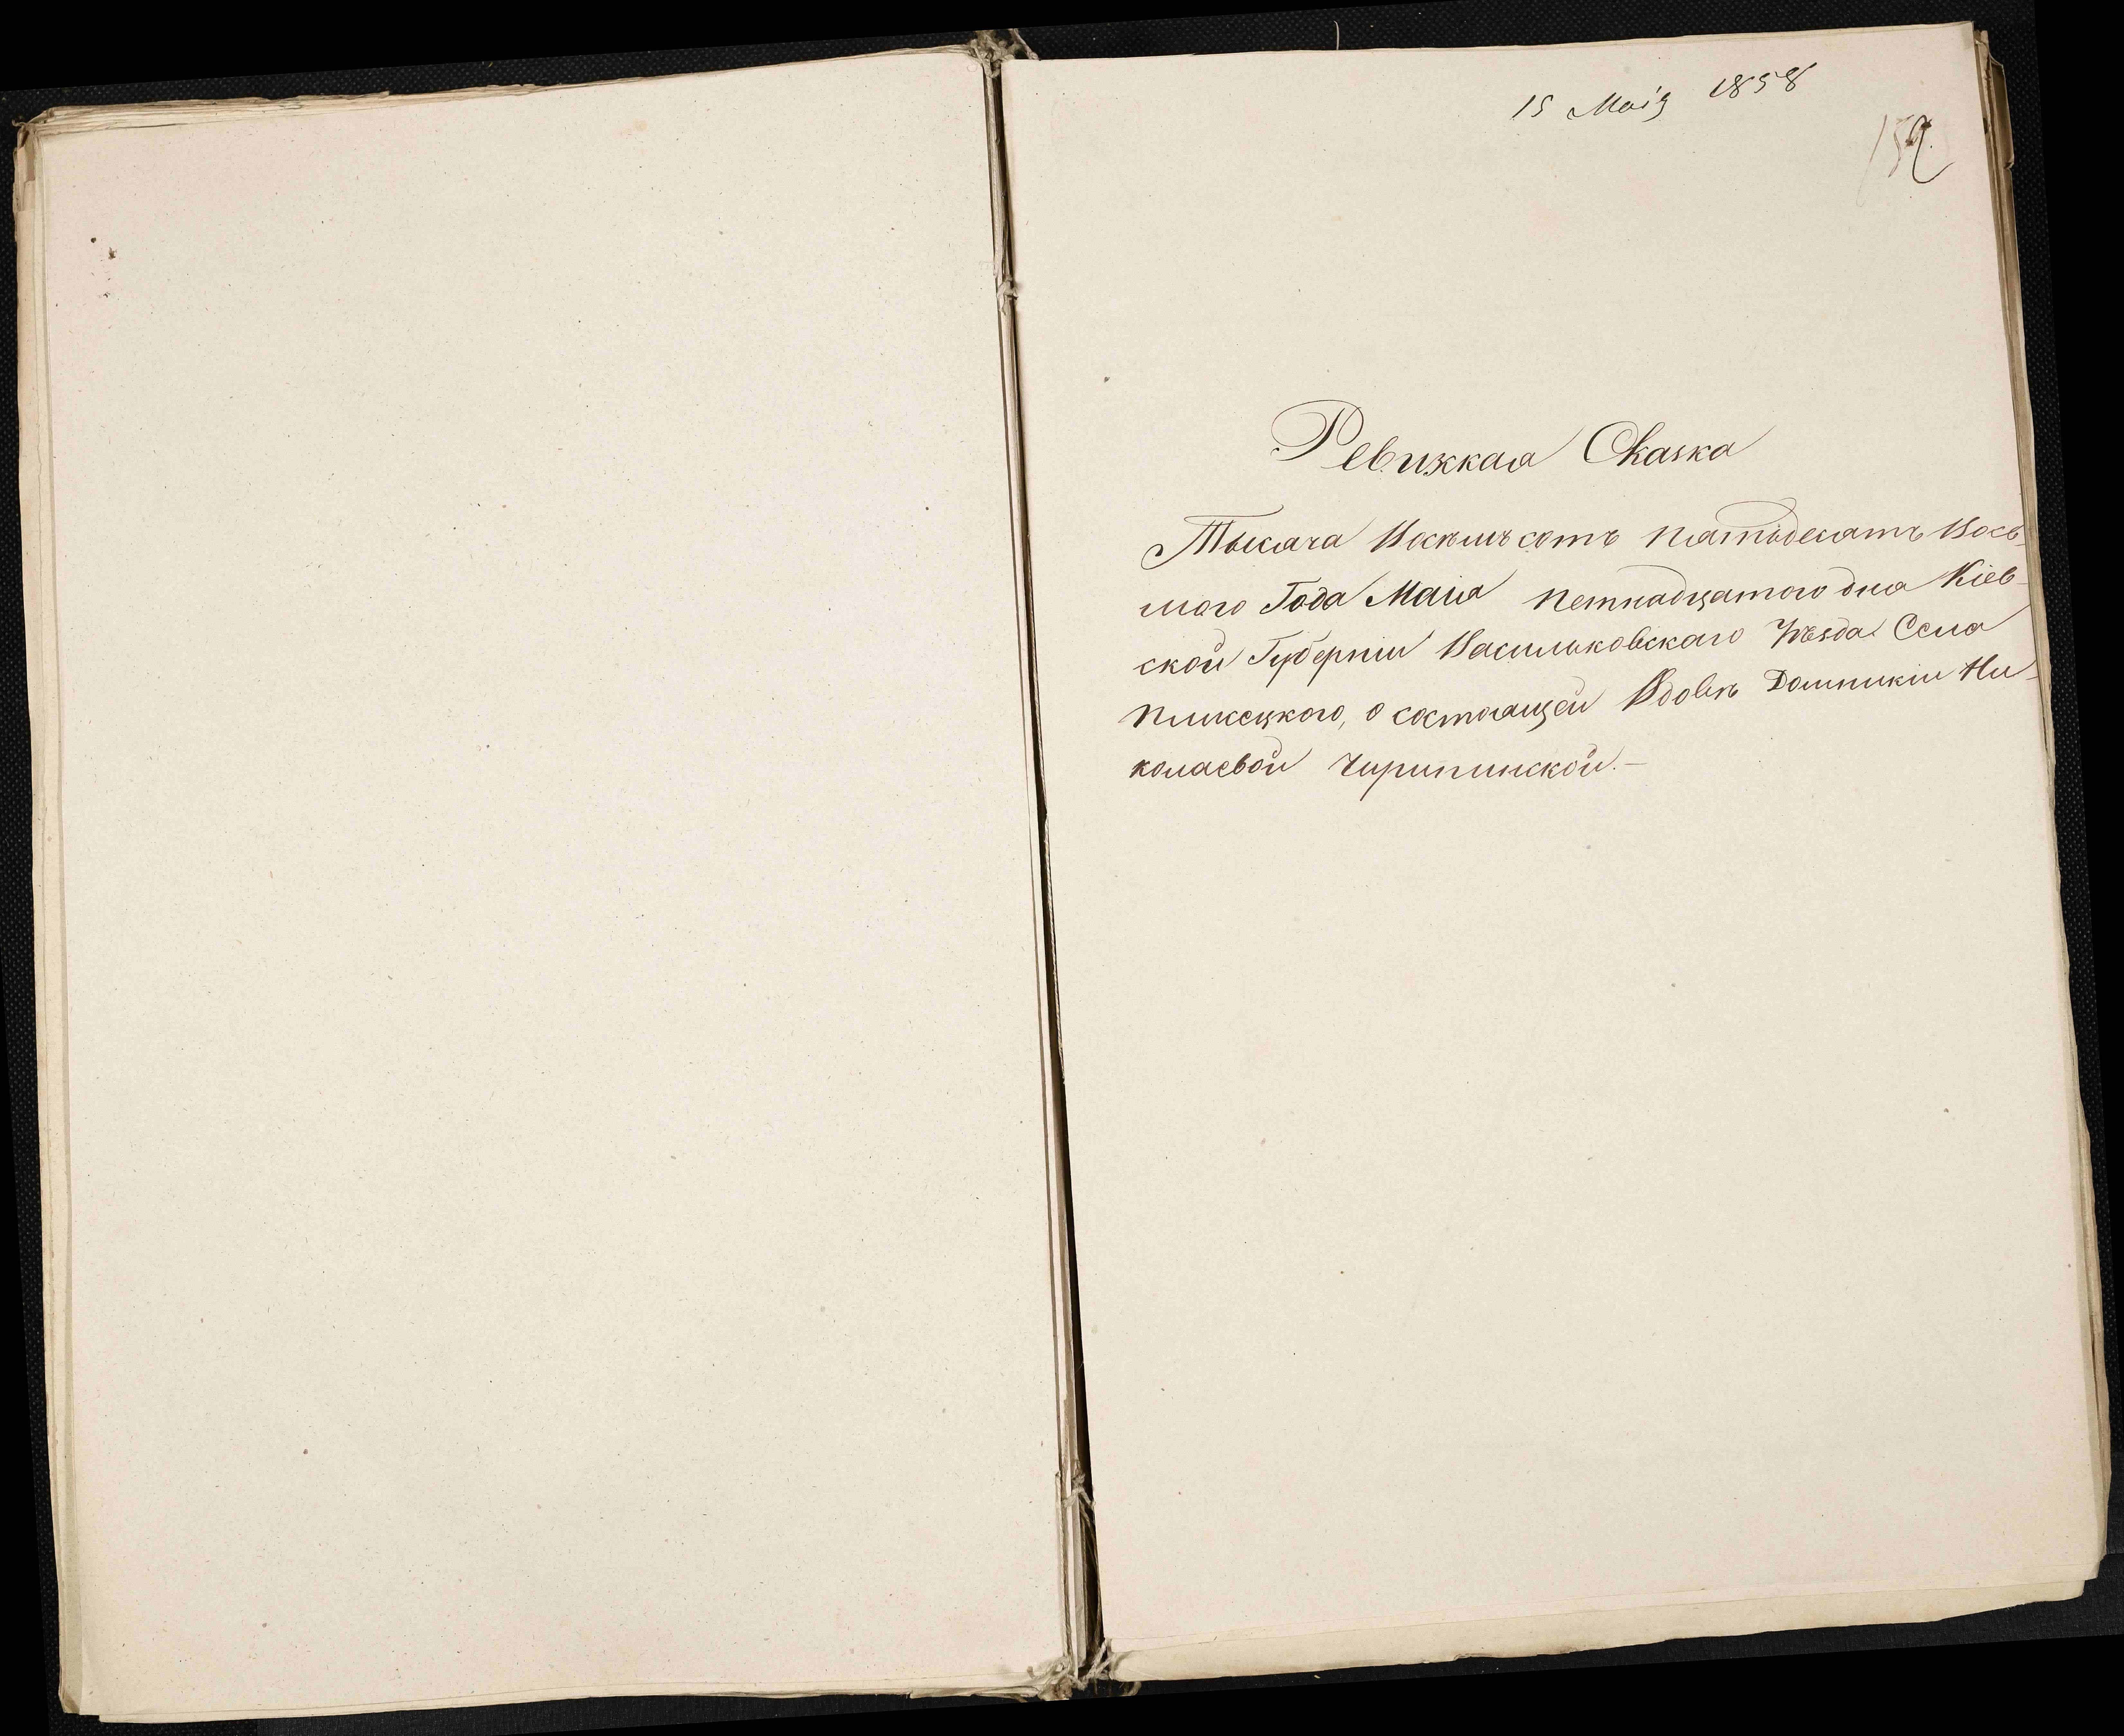 15 Маія 1858
152
Ревижкая Сказка
Тысяча Восемъ сотъ пятьдесятъ Вось-
мого Года Маия петнадцатого дня Кіев-
ской Губерніи Васильковскаго Уѣзда Села
о состоящей Вдовѣ Домникіи Ни-
колаевой Чирипинской.—